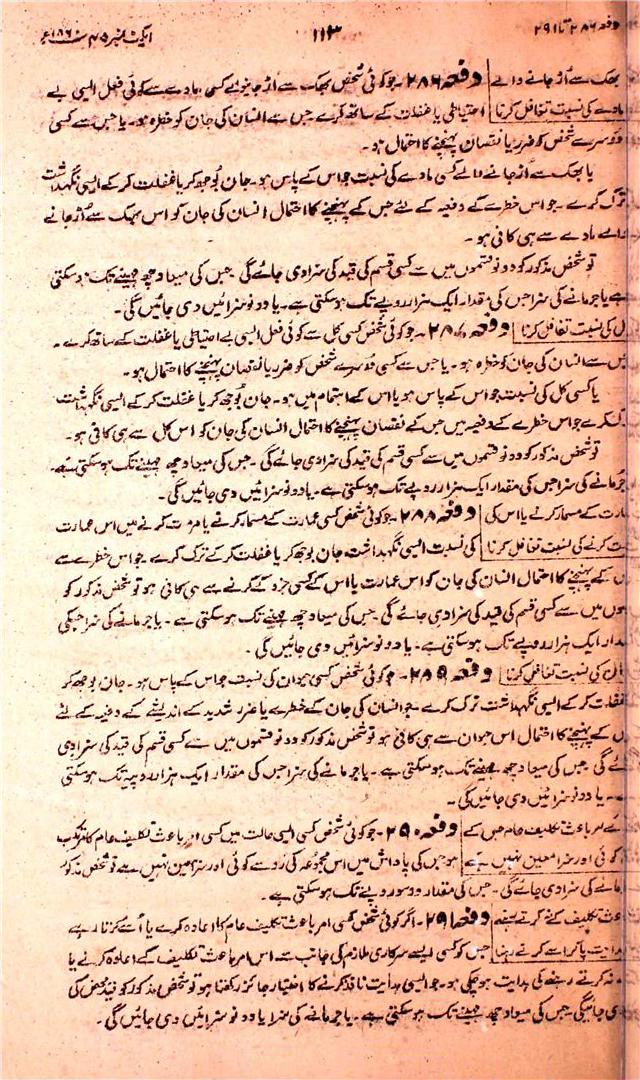 دفعہ ۲۸۶ تا ۲۹۱
۱۱۳
ایکٹ نمبر ۴۵ سنہ ۱۸۶۰ء
بھک سے اُڑ جانے والے دفعہ ۲۸۶ ۔ جو کوئی شخص بھک سے اُڑ جانیوالے کسی مادے سے کوئی فعل ایسی بے
مادے کی نسبت تغافل کرنا احتیاطی یا غفلت کے ساتھ کرے جس سے انسان کی جان کو خطرہ ہو۔ یا جس سے کسی
دوسرے شخص کو ضرر یا نقصان پہنچنے کا احتمال ہو۔
یا بھک سے اُڑ جانے والے کسی مادے کی نسبت جو اس کے پاس ہو۔ جان بُوجھ کر یا غفلت کر کے ایسی نگہداشت
ترک کرے ۔ جو اس خطرے کے دفعیہ کے لئے جس کے پہنچنے کا احتمال انسان کی جان کو اس بھک سے اُڑ جانے
والے مادے سے ہی کافی ہو۔
تو شخص مذکور کو دونو قسموں میں سے کسی قسم کی قید کی سزا دی جائے گی ۔ جس کی میعاد چھ مہینے تک ہو سکتی
ہے یا جرمانے کی سزا جس کی مقدار ایک ہزار روپے تک ہو سکتی ہے ۔ یا دونو سزائیں دی جائیں گی۔
کل کی نسبت تغافل کرنا دفعہ ۲۸۷ ۔ جو کوئی شخص کسی کل سے کوئی فعل ایسی بے احتیاطی یا غفلت کے ساتھ کرے ۔
جس سے انسان کی جان کو خطرہ ہو۔ یا جس سے کسی دُوسرے شخص کو ضرر یا نقصان پہنچنے کا احتمال ہو۔
یا کسی کل کی نسبت جو اس کے پاس ہو یا اس کے اہتمام میں ہو۔ جان بُوجھ کر یا غفلت کر کے ایسی نگہداشت
ترک کرے جو اس خطرے کے دفعیہ میں جس کے نقصان پہنچنے کا احتمال انسان کی جان کو اس کل سے ہی کافی ہو۔
تو شخص مذکور کو دونو قسموں میں سے کسی قسم کی قید کی سزا دی جائے گی ۔ جس کی میعاد چھ مہینے تک ہو سکتی ہے۔
جُرمانے کی سزا جس کی مقدار ایک ہزار روپے تک ہو سکتی ہے ۔ یا دونو سزائیں دی جائیں گی۔
عمارت کے مسمار کرنے یا اس کی دفعہ ۲۸۸ ۔ جو کوئی شخص کسی عمارت کے مسمار کرنے یا مرمت کرنے میں اس عمارت
مرمت کرنے کی نسبت تغافل کرنا کی نسبت ایسی نگہداشت جان بوجھ کر یا غفلت کر کے ترک کرے ۔ جو اس خطرے سے
جس کے پہنچنے کا احتمال انسان کی جان کو اس عمارت یا اس کے کسی جزو کے گرنے سے ہی کافی ہو تو شخص مذکور کو
قسموں میں سے کسی قسم کی قید کی سزا دی جائے گی ۔ جس کی میعاد چھ مہینے تک ہو سکتی ہے ۔ یا جرمانے کی سزا جسکی
مقدار ایک ہزار روپے تک ہو سکتی ہے ۔ یا دونو سزائیں دی جائیں گی۔
حیوان کی نسبت تغافل کرنا دفعہ ۲۸۹ ۔ جو کوئی شخص کسی حیوان کی نسبت جو اس کے پاس ہو۔ جان بوجھ کر
یا غفلت کر کے ایسی نگہداشت ترک کرے ۔ جو انسان کی جان کے خطرے یا ضرر شدید کے اندیشے کے دفعیہ کے لئے
جس کے پہنچنے کا احتمال اس حیوان سے ہی کافی ہو تو شخص مذکور کو دونو قسموں میں سے کسی قسم کی قید کی سزا دی
جائے گی ۔ جس کی میعاد چھ مہینے تک ہو سکتی ہے ۔ یا جرمانے کی سزا جس کی مقدار ایک ہزار روپیہ تک ہو سکتی
ہے ۔ یا دونو سزائیں دی جائیں گی۔
امر باعث تکلیف عام جس کے دفعہ ۲۹۰ ۔ جو کوئی شخص کسی ایسی حالت میں کسی امر باعث تکلیف عام کا مرتکب
کوئی اور سزا معین نہیں ہے ہو جس کی پاداش میں اس مجموعہ کی رُو سے کوئی اور سزا معین نہیں ہے تو شخص مذکور
جرمانے کی سزا دی جائے گی ۔ جس کی مقدار دو سو روپے تک ہو سکتی ہے ۔
باعث تکلیف کے نہ کرتے رہنے دفعہ ۲۹۱ ۔ اگر کوئی شخص کسی امر باعث تکلیف عام کا اعادہ کرے یا اُسے کرتا رہے
ہدایت پا کر اسے کرتے رہنا جس کو کسی ایسے سرکاری ملازم کی جانب سے اس امر باعث تکلیف کے اعادہ کرنے یا
نہ کرتے رہنے کی ہدایت ہو چکی ہو۔ جو ایسی ہدایت نافذ کرنے کا اختیار جائز رکھتا ہو تو شخص مذکور کو قید محض کی
دی جائیگی ۔ جس کی میعاد چھ مہینے تک ہو سکتی ہے ۔ یا جرمانے کی سزا یا دونو سزائیں دی جائیں گی۔